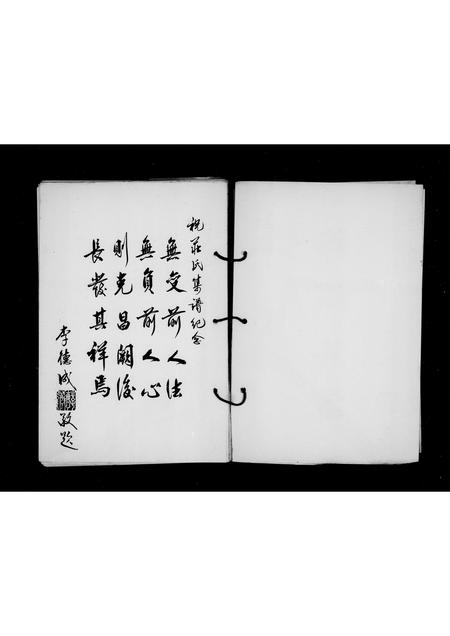 祝莊氏集譜紀念
無前人法
無負前人心
則克昌闕後
長發其祥焉
李德成敬題